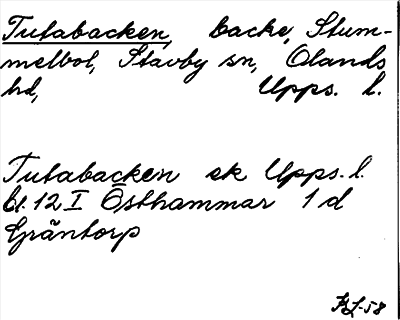 Tutabacken, backe, Stum-
melbol, Stavby sn, Olands
hd, Upps. l.
Tutabacken ek Upps. l.
bl. 12 I Östhammar 1 d
Gräntorp
KL-58